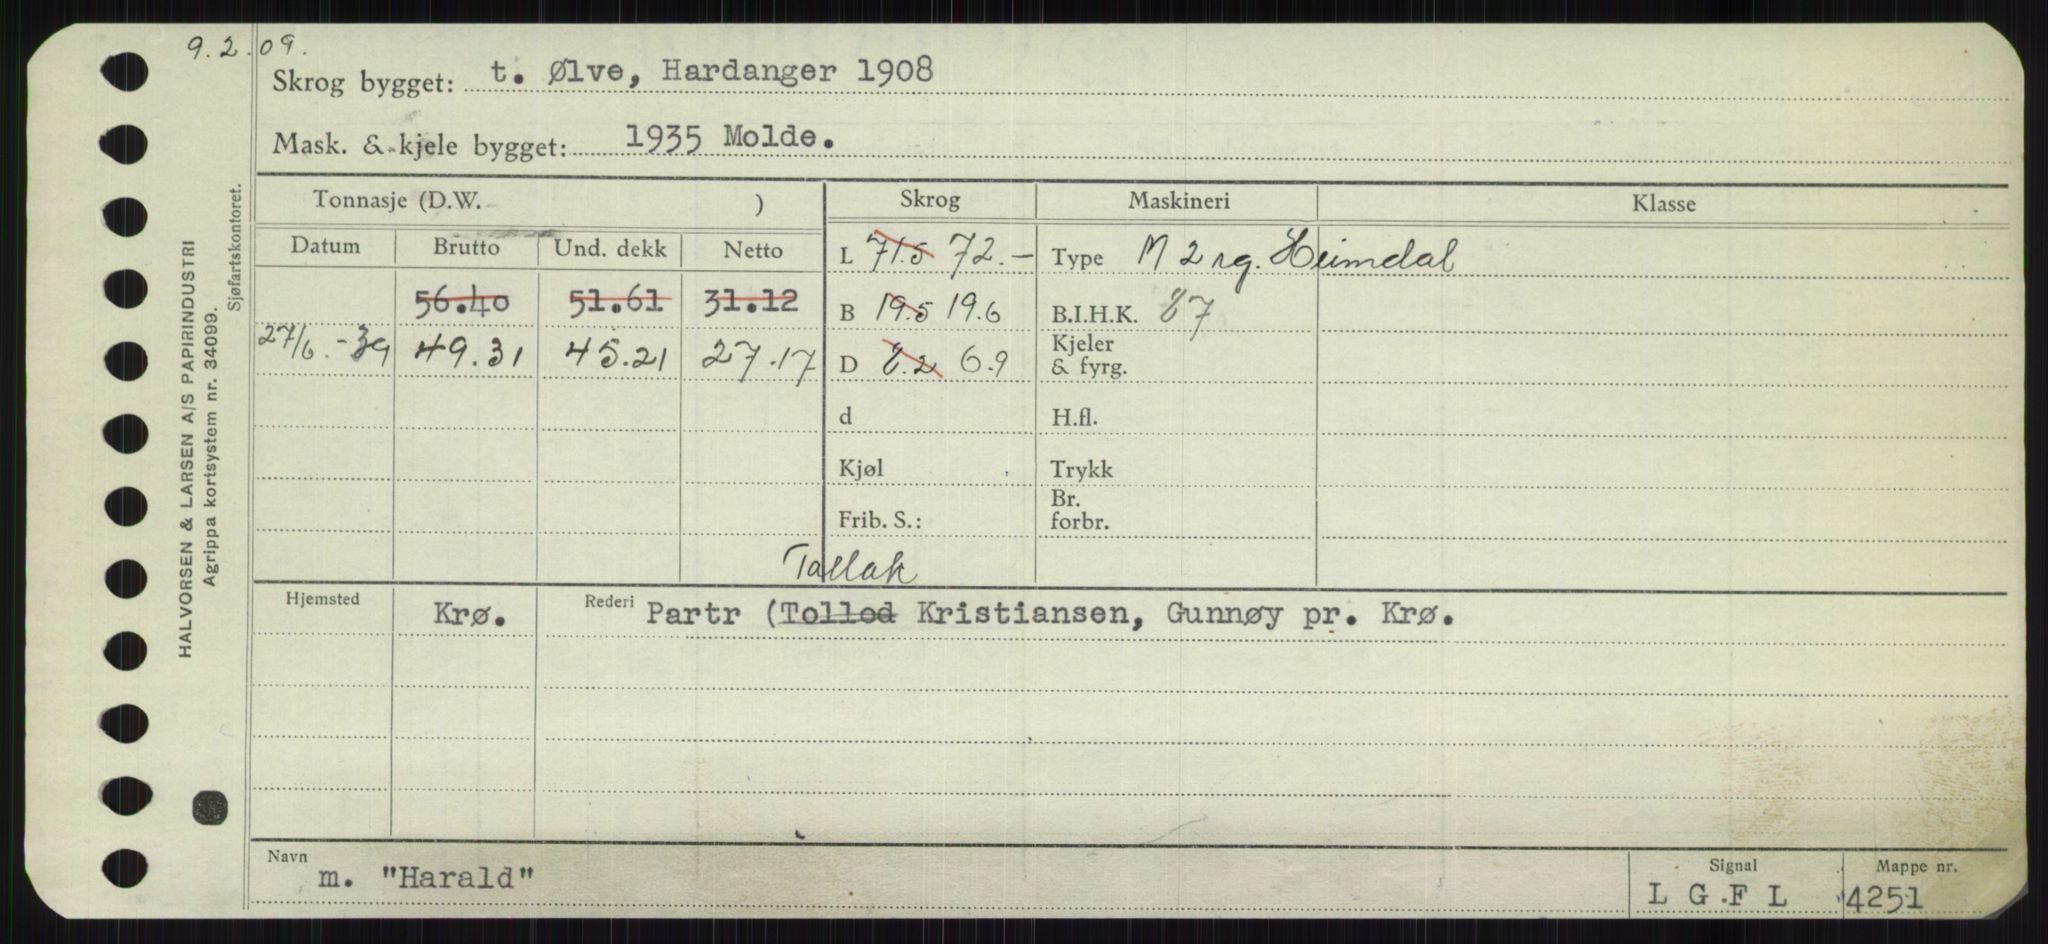 9.2.09.
Skrog bygget: t. Ølve, Hardanger 1908
Mask. & kjele bygget: 1935 Molde.
Tonnasje (D.W. ) Skrog Maskineri Klasse
Datum Brutto Und. dekk Netto
L 71.5 72.- Type M 2 rg. Heimdal
56.40 51.61 31.12 B 19.5 19.6 B.I.H.K. 87
27/6.-39 49.31 45.21 27.17 D 8.2 6.9 Kjeler & fyrg.
d H.fl.
Kjøl Trykk
Frib. S.: Br. forbr.
Tallak
Hjemsted Krø. Rederi Partr (Tollod Kristiansen, Gunnøy pr. Krø.
Navn m. "Harald"
Signal L G.F L
Mappe nr. 4251
HALVORSEN & LARSEN A/S PAPIRINDUSTRI
Agrippa kortsystem nr. 34099.
Sjøfartskontoret.